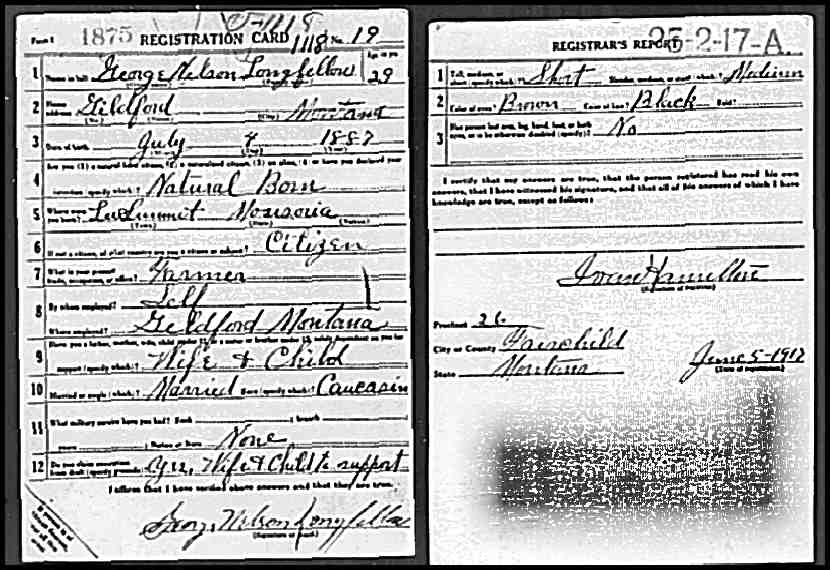 1875 REGISTRATION CARD 1118 No. 19
1 Name in full George Nelson Longfellow Age, in yrs. 29
2 Home address Gildford Montana
3 Date of birth July 4 1887
Are you (1) a natural born citizen, (2) a naturalized citizen, (3) an alien, (4) or have you declared your
4 intention (specify which)? Natural Born
5 Where were you born? Summit
6 If not a citizen, of what country are you a citizen or subject? Citizen
7 What is your present trade, occupation, or office? Farmer
8 By whom employed? Self
Where employed? Geildford Montana
9 support (specify which)? Wife & Child
10 Married or single (which)? Married Race (specify which)? Caucasin
11 What military service have you had? Rank branch
years Nation or State None
12 Do you claim exemption from draft (specify grounds)? Yes, Wife & Child to support
I affirm that I have verified above answers and that they are true.
Nelson Longfellow
(Signature or mark)
23-2-17-A
REGISTRAR'S REPORT
1 Tall, medium, or short (specify which)? Short Slender, medium, or stout (which)? Medium
2 Color of eyes? Brown Color of hair? Black Bald?
3 Has person lost arm, leg, hand, foot, or both eyes, or is he otherwise disabled (specify)? No
I certify that my answers are true, that the person registered has read his own
answers, that I have witnessed his signature, and that all of his answers of which I have
knowledge are true, except as follows:
(Signature of registrar)
Precinct 26
City or County Fairchild
State Montana June 5-1917
(Date of registration)